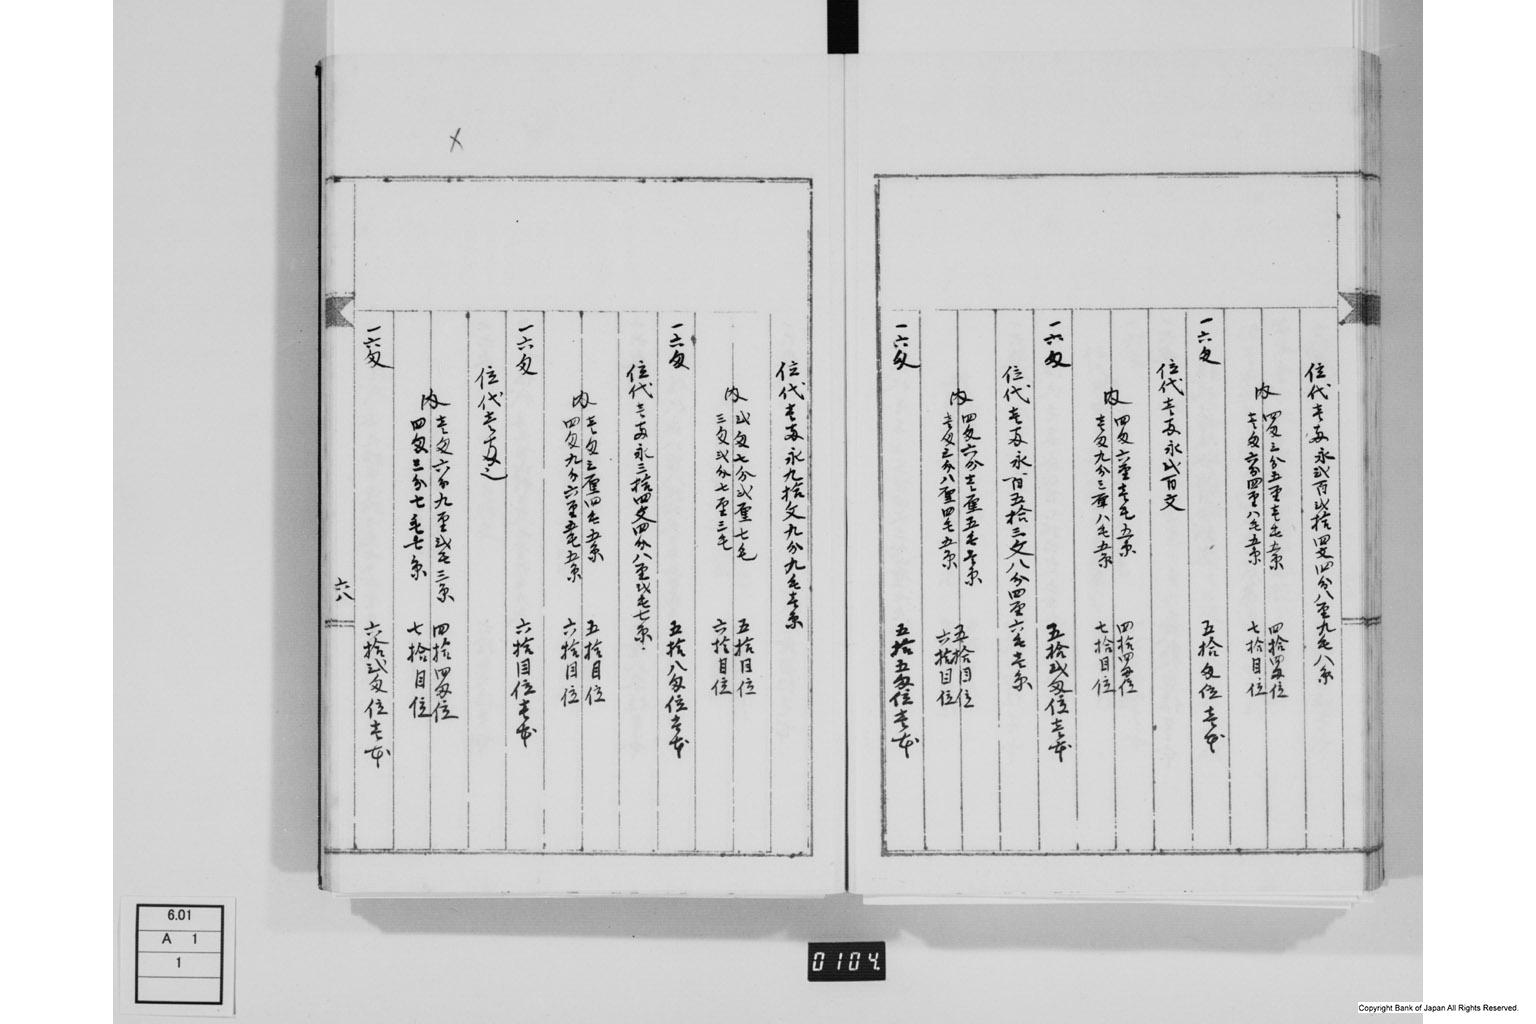 位代壱両永弐百弐拾四文四分八厘九毛八糸
内 四匁三分五厘壱毛五糸 四拾四匁位
壱匁六分四厘八毛五糸 七拾目位
一六匁 五拾匁位壱本
位代壱両永弐百文
内 四匁六厘壱毛五糸 四拾四匁位
壱匁九分三厘八毛五糸 七拾目位
一六匁 五拾弐匁位壱本
位代壱両永百五拾三文八分四厘六毛壱糸
内 四匁六分壱厘五毛五糸 五拾目位
壱匁三分八厘四毛五糸 六拾目位
一六匁 五拾五匁位壱本
位代壱両永九拾文九分九毛壱糸
内 弐匁七分弐厘七毛 五拾目位
三匁弐分七厘三毛 六拾目位
一六匁 五拾八匁位壱本
位代壱両永三拾四文四分八厘弐毛七糸
内 壱匁三厘四毛五糸 五拾目位
四匁九分六厘五毛五糸 六拾目位
一六匁 六拾目位壱本
位代壱両之
内 壱匁六分九厘弐毛三糸 四拾四匁位
四匁三分七毛七糸 七拾目位
一六匁 六拾弐匁位壱本
六八
6.01
A 1
1
0104
Copyright Bank of Japan All Rights Reserved.